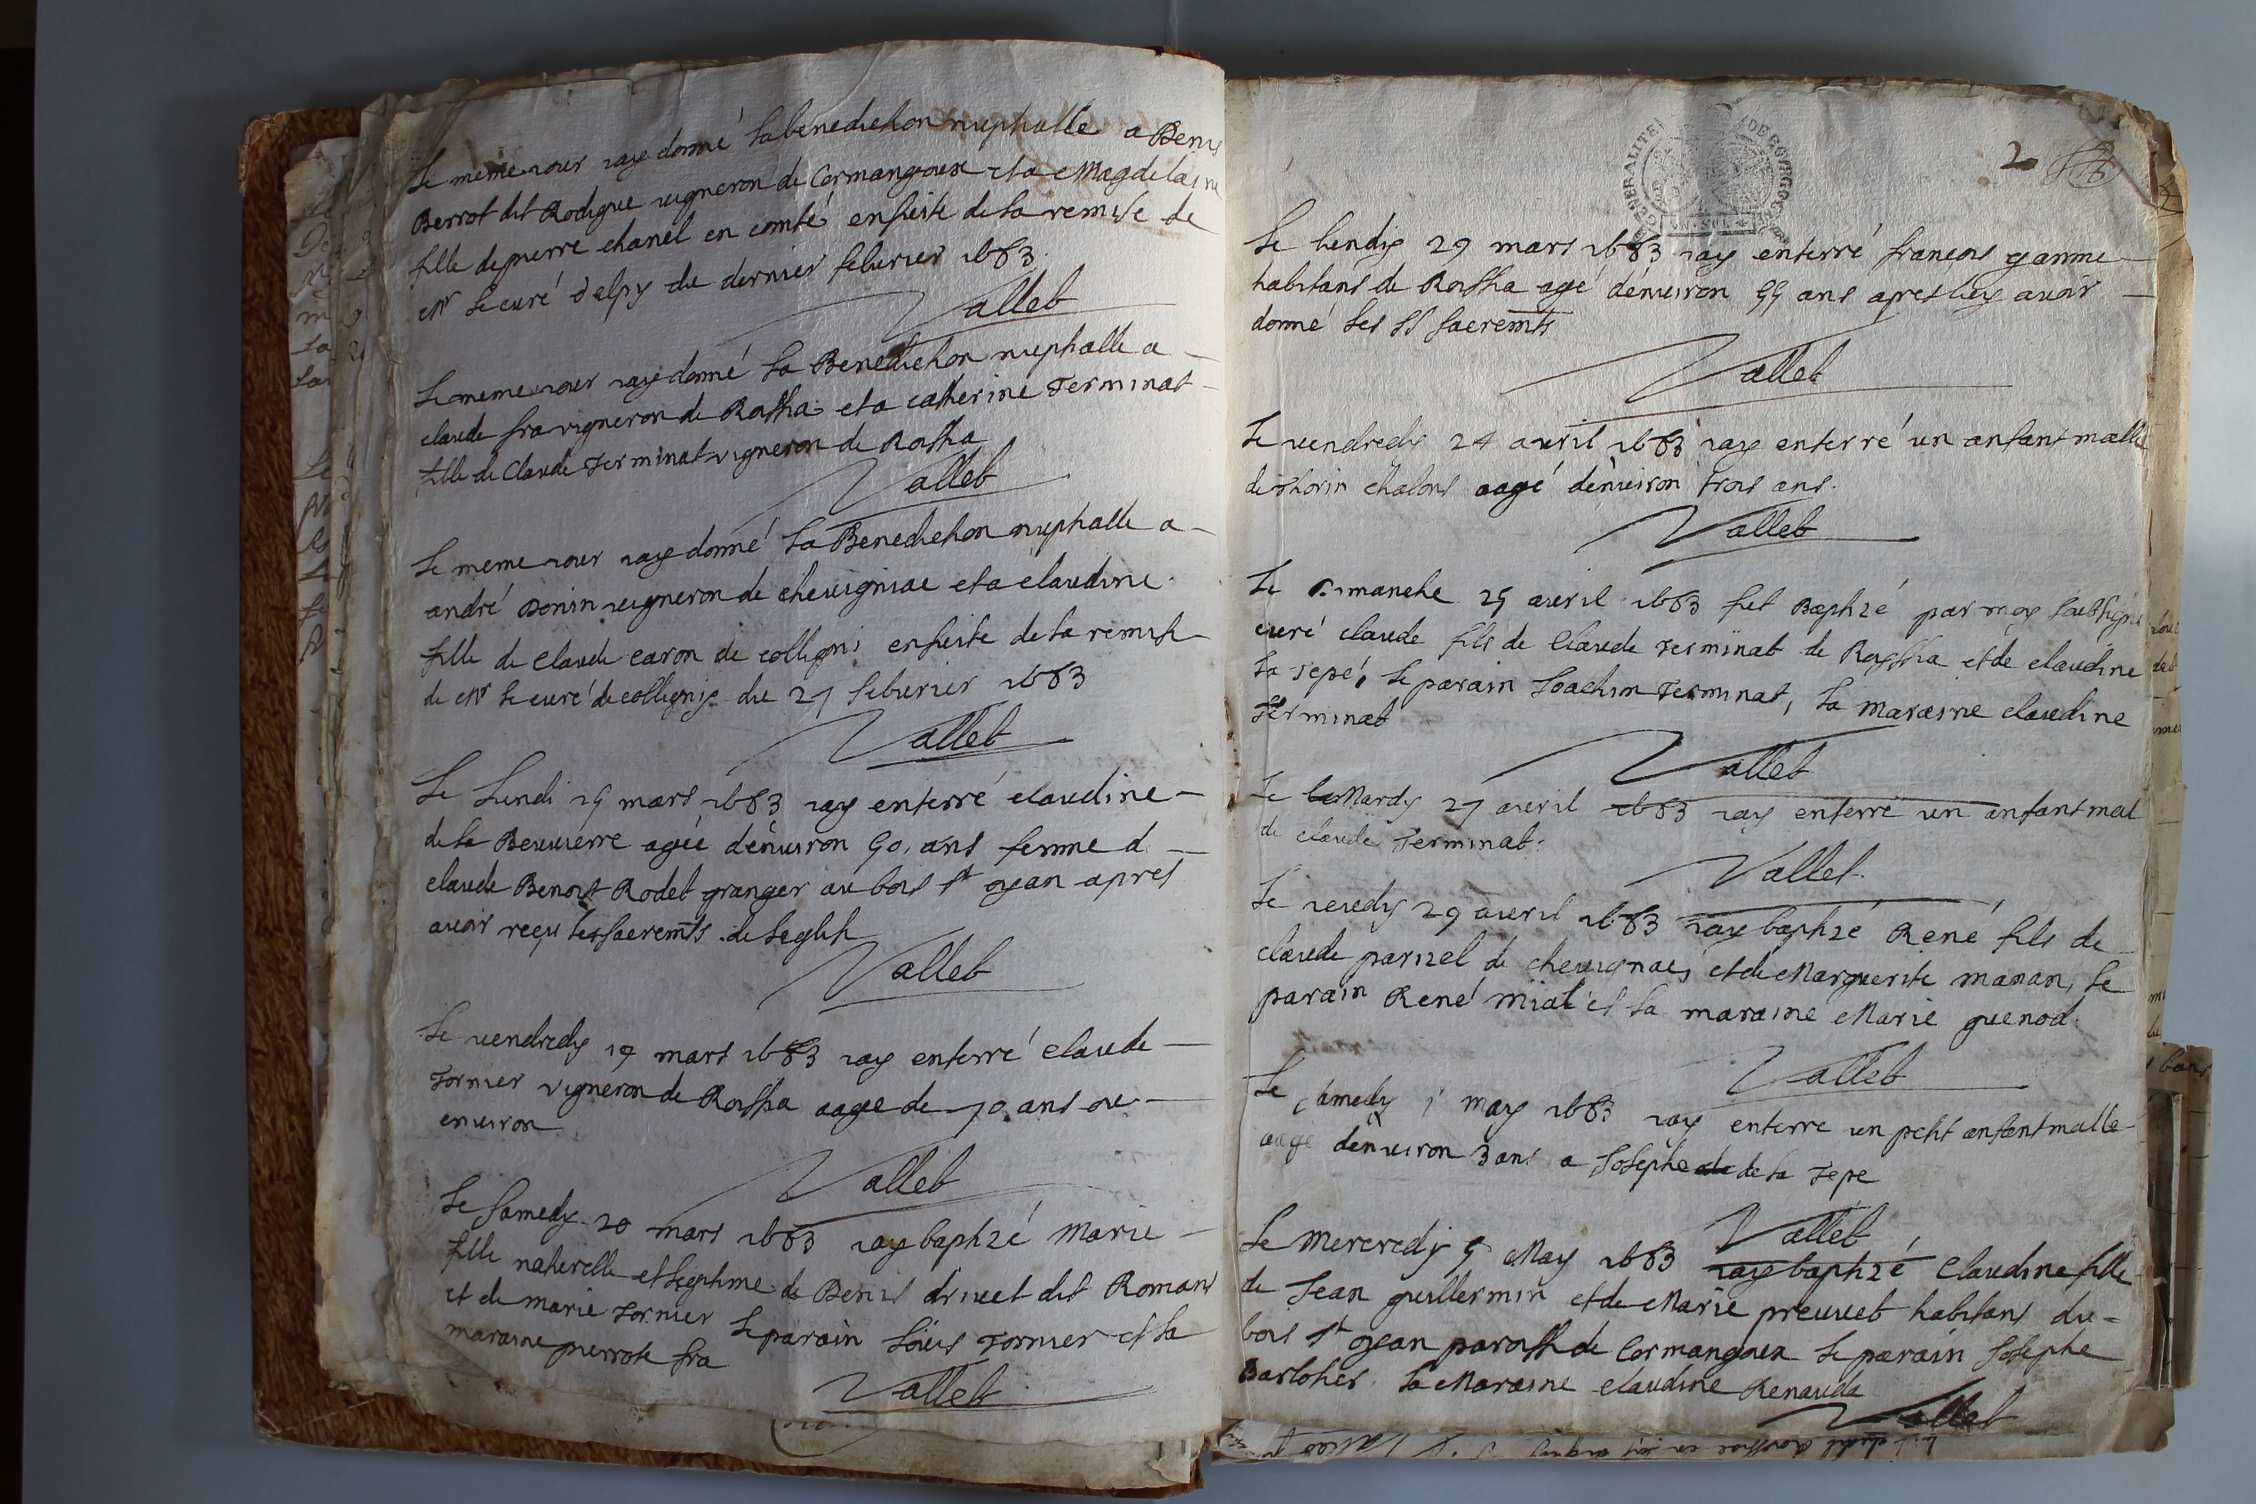 Le meme iour iay donné la benediction nuptialle a Benis
Berrot dit Rodigue vigneron de Cormangoux et a Magdelaine
fille de pierre chanel en comté ensuite de la remise de
Mr le curé delpy du dernier feburier 1683.
Vallet
Le meme iour iay donné la Benediction nuptialle a
claude fra vigneron de Rossia et a catherine Terminat
fille de Claude Terminat vigneron de Rossia
Vallet
Le meme iour iay donné la Benediction nuptialle a
andré Bonin vigneron de chevigniac et a claudine
fille de claude caron de colligni ensuite de la remise
de Mr le curé de colligny du 27 feburier 1683
Vallet
Le Lundi 15 mars 1683 iay enterré claudine
de la Beuvierre agée denuiron 50 ans femme d
claude Benoist Rodet granger au bois st oyan apres
avoir reçu les sacremts de leglise
Vallet
Le vendredy 19 mars 1683 iay enterré claude
Tornier vigneron de Rossia aagé de 70 ans ou
enuiron
Vallet
Le samedy 20 mars 1683 iay baptizé Marie
fille naturelle et legitime de Benis drivet dit Romans
et de marie Tornier le parain Loüis Tornier et la
maraine pierrote fra
Vallet
GENERALITE DE BOVRGOGNE
2
Le lundy 29 mars 1683 iay enterré françois
habitans de Rossia agé denuiron 55 ans apres luy avoir
donné les SS sacremts
Vallet
Le vendredy 24 avril 1683 iay enterré un anfant malle
de thorin chalons aagé denuiron trois ans.
Vallet
Le dimanche 25 avril 1683 fut Baptizé par moy soubsigné
curé claude fils de Claude Terminat de Rossia et de claudine
la Tepe, le parain Joachim Terminat, la maraine claudine
Terminat
Vallet
Le Mardy 27 avril 1683 iay enterré un anfant mal
de claude Terminat.
Vallet
Le ieudy 29 avril 1683 iay baptizé René fils de
claude parizel de chevignac, et de Marguerite manan, le
parain René miat et la maraine Marie guenod.
Vallet
Le samedy 1 may 1683 iay enterre un petit anfant malle
aagé denuiron 3 ans a Josephe de la Tepe
Vallet
Le Mercredy 5 May 1683 iay baptizé Claudine fille
de Jean guillermin et de Marie preuvet habitans du
bois st oyan paroisse de Cormangoux le parain Josephe
Bartolier la Maraine claudine Renauda
Vallet